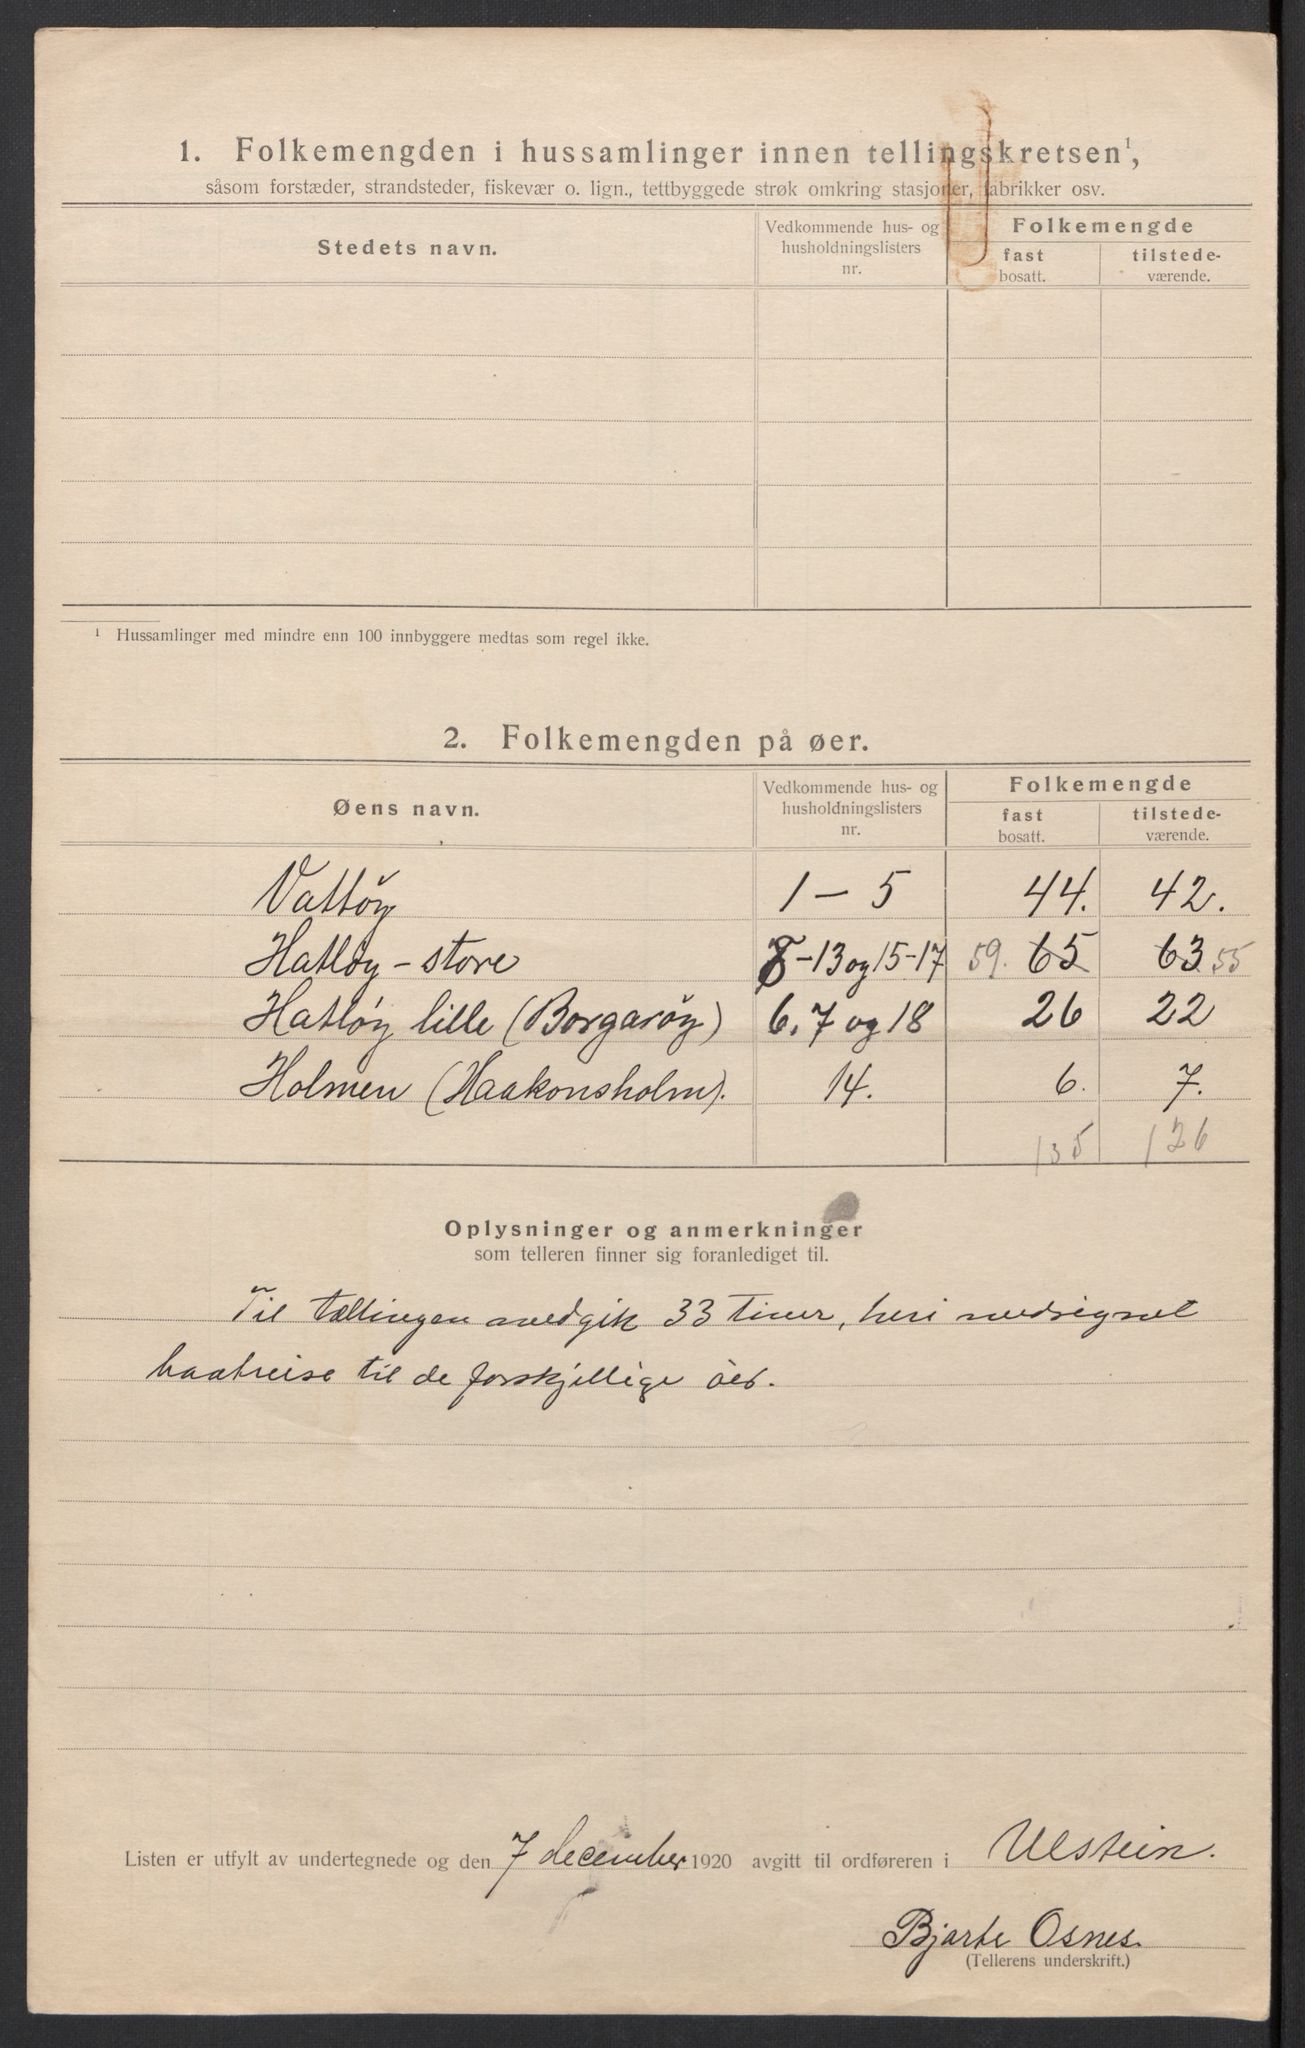 1. Folkemengden i hussamlinger innen tellingskretsen¹,
såsom forstæder, strandsteder, fiskevær o. lign., tettbyggede strøk omkring stasjoner, fabrikker osv.
Stedets navn. Vedkommende hus- og husholdningslisters nr. Folkemengde
fast bosatt. tilstede-værende.
¹ Hussamlinger med mindre enn 100 innbyggere medtas som regel ikke.
2. Folkemengden på øer.
Øens navn. Vedkommende hus- og husholdningslisters nr. Folkemengde
fast bosatt. tilstede-værende.
Vattöy 1 – 5 44. 42.
Hatløy – store 8 – 13 og 15 – 17 59. 65 63 55
Hatløy lille (Borgarøy) 6, 7 og 18 26 22
Holmen (Haakonsholm). 14. 6. 7.
135 126
Oplysninger og anmerkninger
som telleren finner sig foranlediget til.
Til tællingen medgik 33 timer, heri medregnet
baatreise til de forskjellige öer.
Listen er utfylt av undertegnede og den 7 december 1920 avgitt til ordføreren i Ulstein.
Bjarte Osnes.
(Tellerens underskrift.)